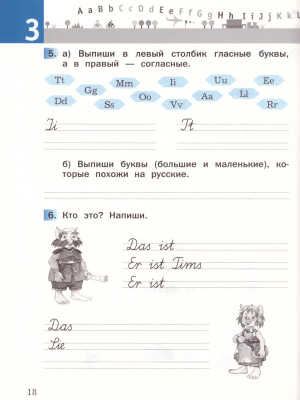 Aa Bb Cc Dd Ee Ff Gg Hh Ii Jj Kk L
3
5. а) Выпиши в левый столбик гласные буквы,
а в правый — согласные.
Tt Gg Mm Ii Uu Ee
Dd Ss Oo Vv Aa Ll Rr
Ii Tt
б) Выпиши буквы (большие и маленькие), ко-
торые похожи на русские.
6. Кто это? Напиши.
Das ist
Er ist Tims
Er ist
Das
Sie
18